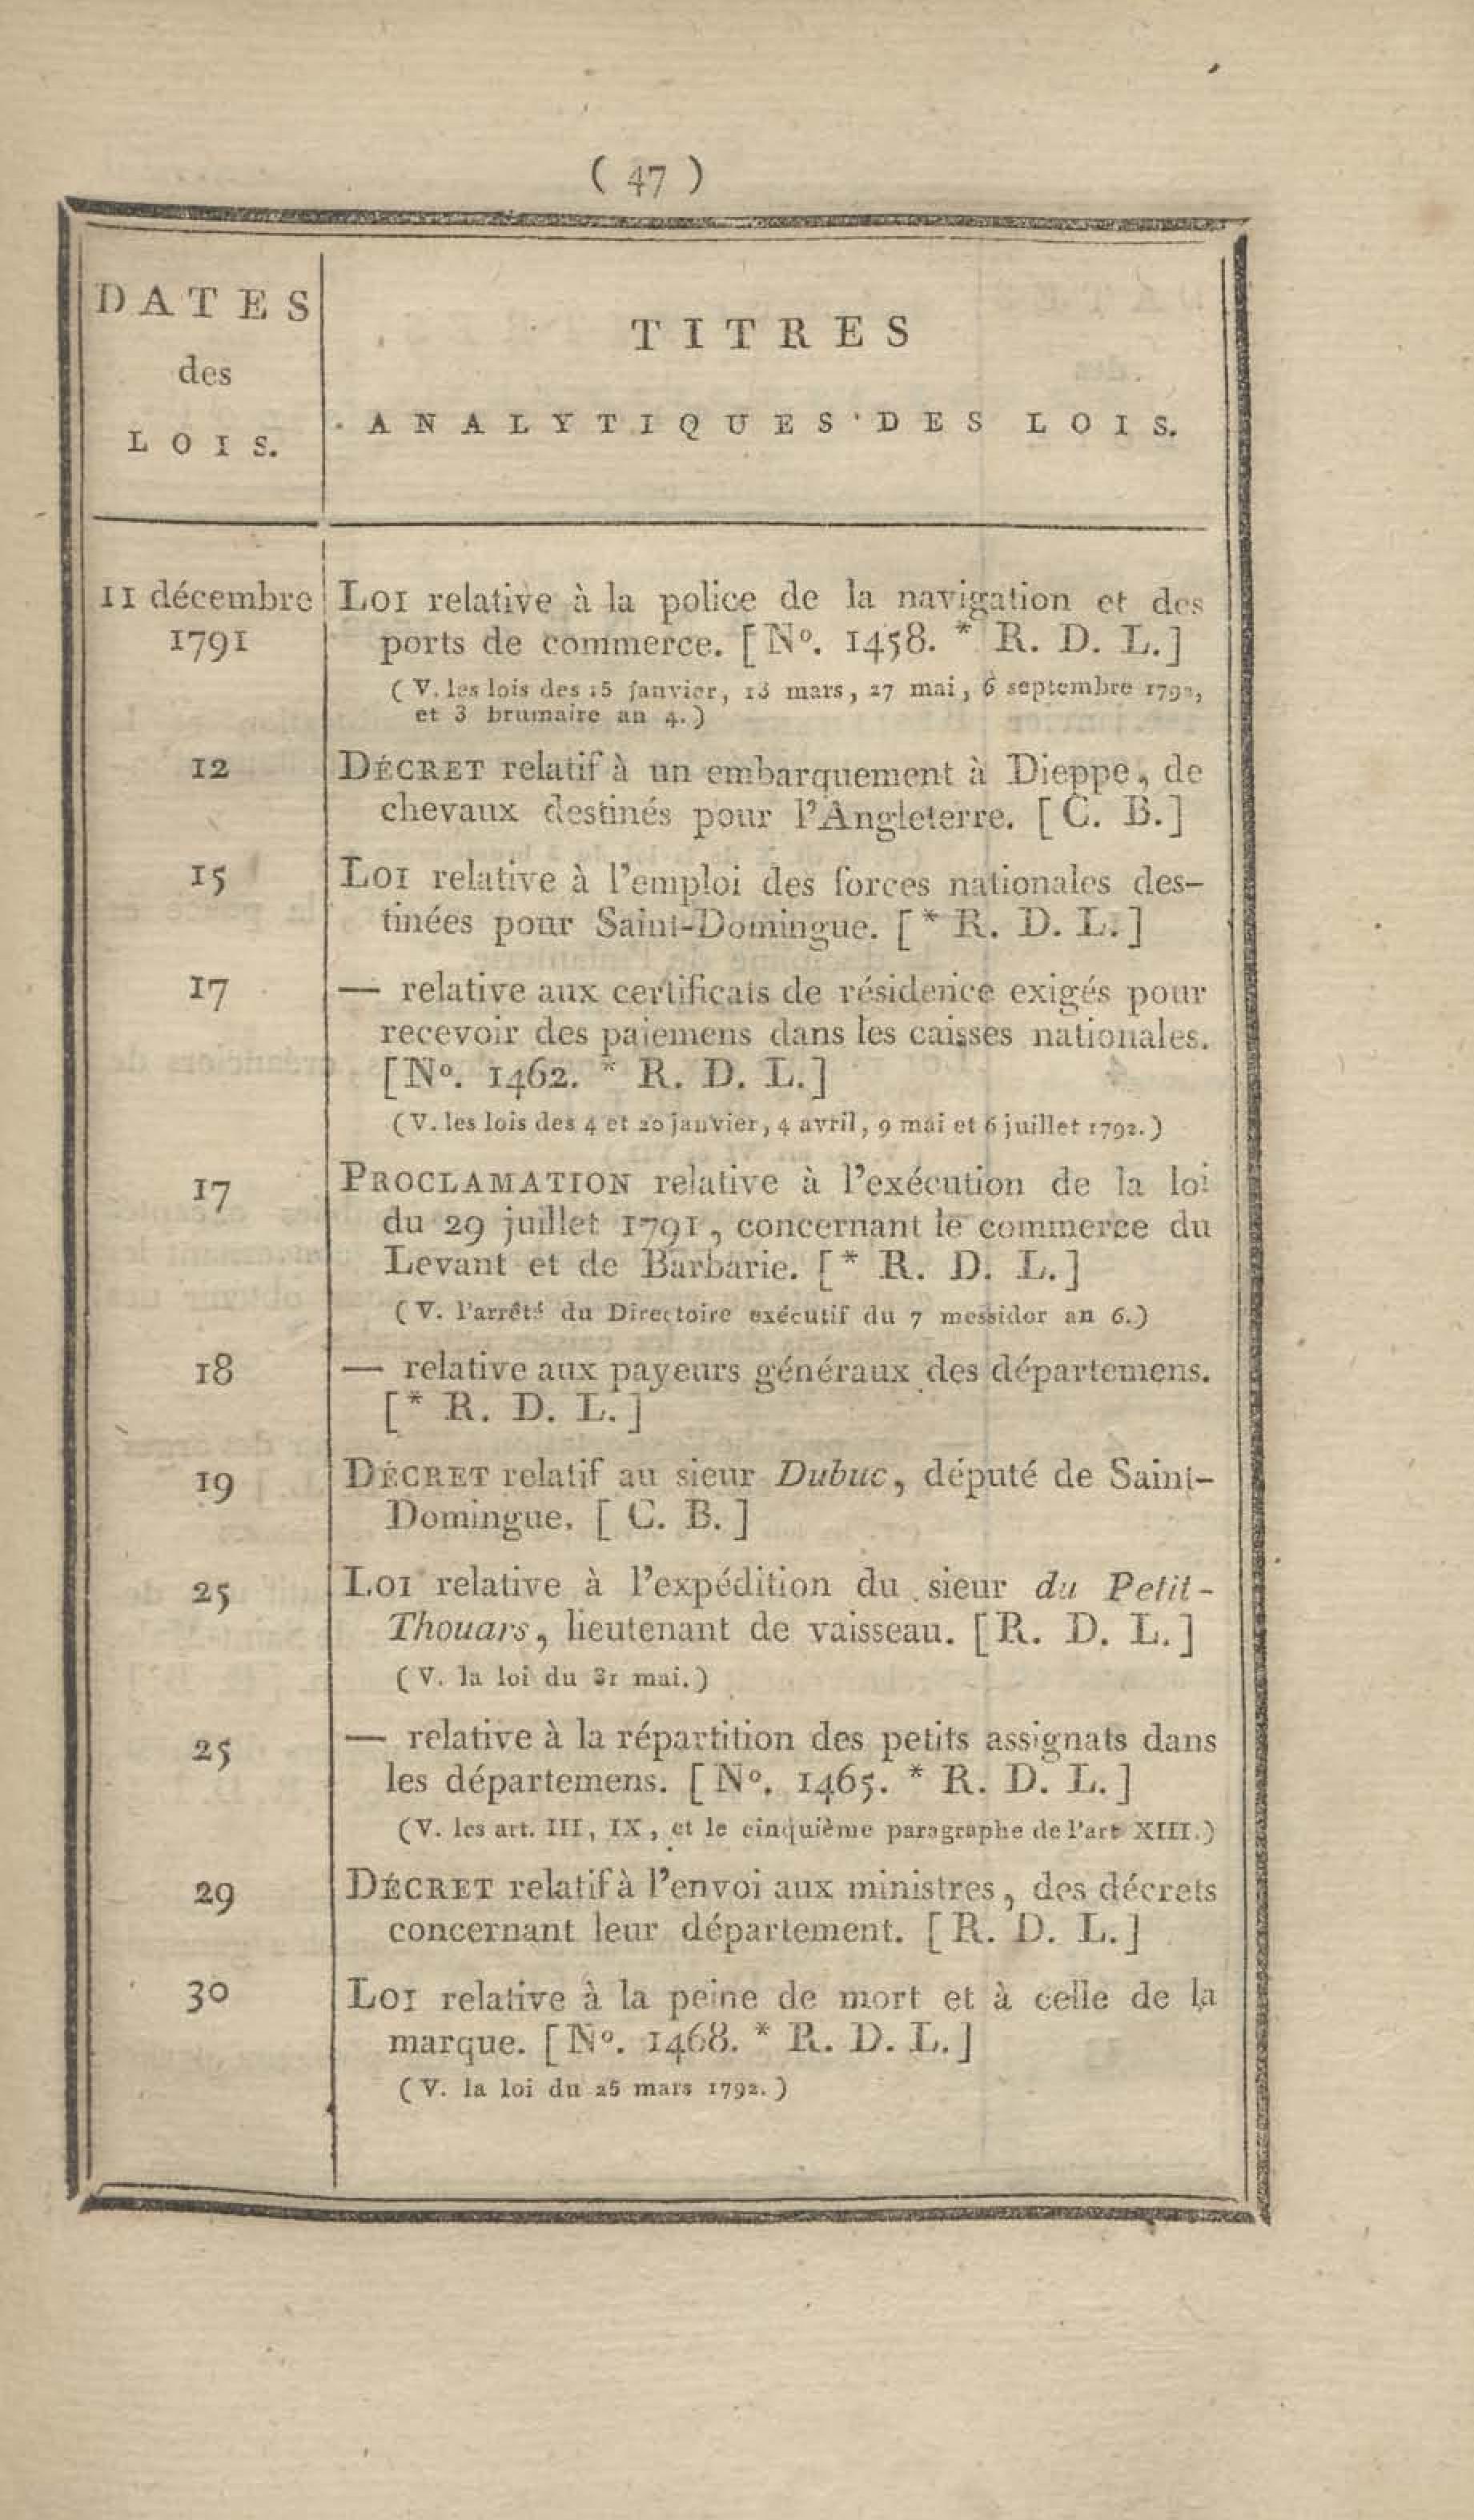 ( 47 )
DATES
des
LOIS.
TITRES
ANALYTIQUES DES LOIS.
11 décembre
1791
LOI relative à la police de la navigation et des
ports de commerce. [ Nº. 1458. * R. D. L.]
( V. les lois des 15 janvier, 13 mars, 27 mai, 6 septembre
et 3 brumaire an 4.)
12
DÉCRET relatif à un embarquement à Dieppe, de
chevaux destinés pour l'Angleterre. [ C. B.]
15
LOI relative à l'emploi des forces nationales des-
tinées pour Saint-Domingue. [ * R. D. L.]
17
— relative aux certificats de résidence exigés pour
recevoir des paiemens dans les caisses nationales.
[Nº. 1462. * R. D. L.]
(V. les lois des 4 et 20 janvier, 4 avril, 9 mai et 6 juillet 1792.)
17
PROCLAMATION relative à l'exécution de la loi
du 29 juillet 1791, concernant le commerce du
Levant et de Barbarie. [ * R. D. L.]
( V. l'arrêté du Directoire exécutif du 7 messidor an 6.)
18
— relative aux payeurs généraux des départemens.
[ * R. D. L.]
19
DÉCRET relatif au sieur Dubuc, député de Saint-
Domingue. [ C. B. ]
25
LOI relative à l'expédition du sieur du Petit-
Thouars, lieutenant de vaisseau. [ R. D. L.]
( V. la loi du 31 mai.)
25
— relative à la répartition des petits assignats dans
les départemens. [ Nº. 1465. * R. D. L.]
(V. les art. III, IX, et le cinquième paragraphe de l'art XIII.)
29
DÉCRET relatif à l'envoi aux ministres, des décrets
concernant leur département. [ R. D. L.]
30
LOI relative à la peine de mort et à celle de la
marque. [ Nº. 1468. * R. D. L.]
( V. la loi du 25 mars 1792. )